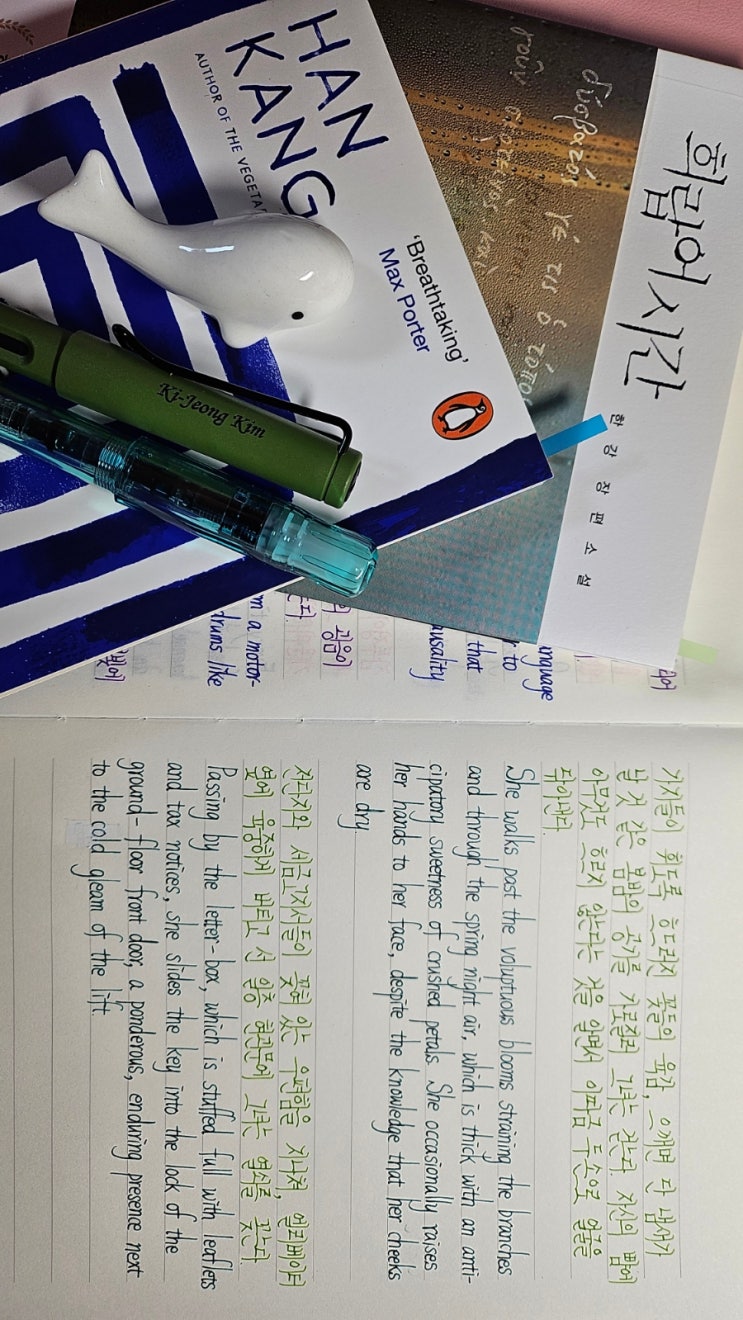 희랍어 시간
한강 장편소설
δύσβατός γέ τις ὁ
HAN
KANG
AUTHOR OF THE
'Breathtaking'
Max Porter
Ki-Jeong Kim
to
that
의 굉음이
m a motor-
drums like
가지들이 휘도록 흐드러진 꽃들의 육감, 으깨면 단 냄새가
날 것 같은 봄밤의 공기를 가로질러 그녀는 걷는다. 자신의 뺨에
아무것도 흐르지 않는다는 것을 알면서 이따금 두 손으로 얼굴을
닦아낸다.
She walks past the voluptuous blooms straining the branches
and through the spring night air, which is thick with an anti-
cipatory sweetness of crushed petals. She occasionally raises
her hands to her face, despite the knowledge that her cheeks
are dry
전단지와 세금고지서들이 꽂혀 있는 우편함을 지나쳐, 엘리베이터
옆에 육중하게 버티고 선 일층 현관문에 그녀는 열쇠를 꽂는다.
Passing by the letter-box, which is stuffed full with leaflets
and tax notices, she slides the key into the lock of the
ground-floor front door, a ponderous, enduring presence next
to the cold gleam of the lift